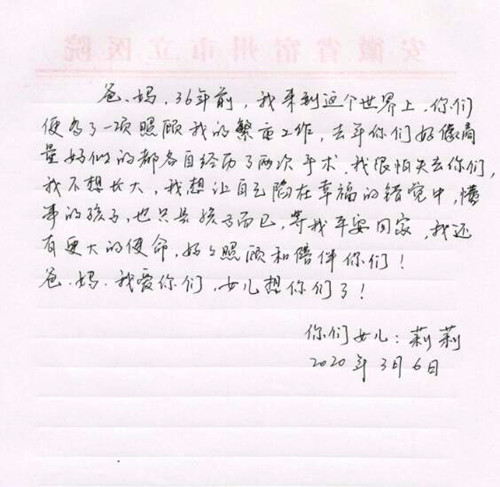 安徽省宿州市立医院
爸、妈，36年前，我来到这个世界上，你们
便多了一项照顾我的繁重工作，去年你们好像商
量好似的都各自经历了两次手术，我很怕失去你们，
我不想长大，我想让自己陷在幸福的错觉中，懂
事的孩子，也只是孩子而已，等我平安回家，我还
有更大的使命，好好照顾和陪伴你们！
爸、妈、我爱你们，女儿想你们了！
你们女儿：莉莉
2020年3月6日